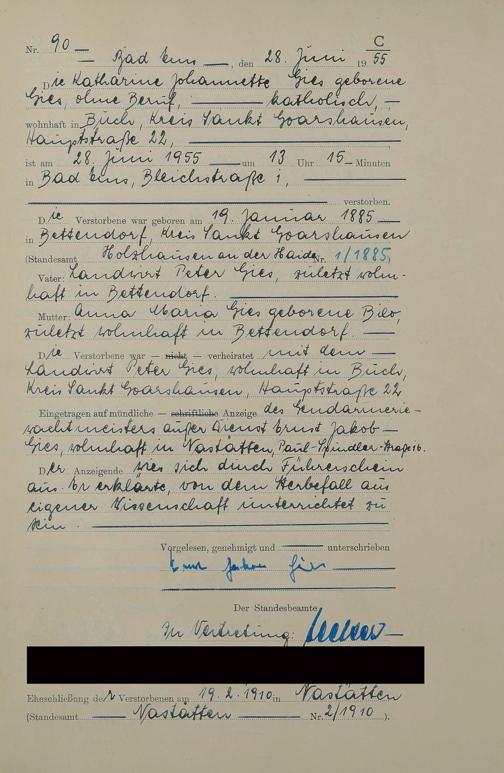 Nr. 90 C
Bad Ems, den 28. Juni 1955
Die Katharine Johannette Gies geborene
Gies, ohne Beruf, katholisch,
wohnhaft in Buch, Kreis Sankt Goarshausen,
Hauptstraße 22,
ist am 28. Juni 1955 um 13 Uhr 15 Minuten
in Bad Ems, Bleichstraße 1,
verstorben.
Die Verstorbene war geboren am 19. Januar 1885
in Bettendorf, Kreis Sankt Goarshausen
(Standesamt Holzhausen an der Haide Nr. 1/1885)
Vater: Landwirt Peter Gies, zuletzt wohn-
haft in Bettendorf.
Mutter: Anna Maria Gies geborene
zuletzt wohnhaft in Bettendorf.
Die Verstorbene war — nicht — verheiratet mit dem
Landwirt Peter Gies, wohnhaft in Buch,
Kreis Sankt Goarshausen, Hauptstraße 22
Eingetragen auf mündliche — schriftliche Anzeige des Gendarmerie-
wachtmeisters außer Dienst Ernst Jakob
Gies, wohnhaft in Nastätten, Paul-Spindler-Straße 16.
Der Anzeigende wies sich durch Führerschein
aus. Er erklärte, von dem Sterbefall aus
eigener Wissenschaft unterrichtet zu
sein.
Vorgelesen, genehmigt und unterschrieben
Ernst Jakob Gies
Der Standesbeamte
In Vertretung:
Eheschließung der Verstorbenen am 19.2.1910 in Nastätten
(Standesamt Nastätten Nr. 2/1910).